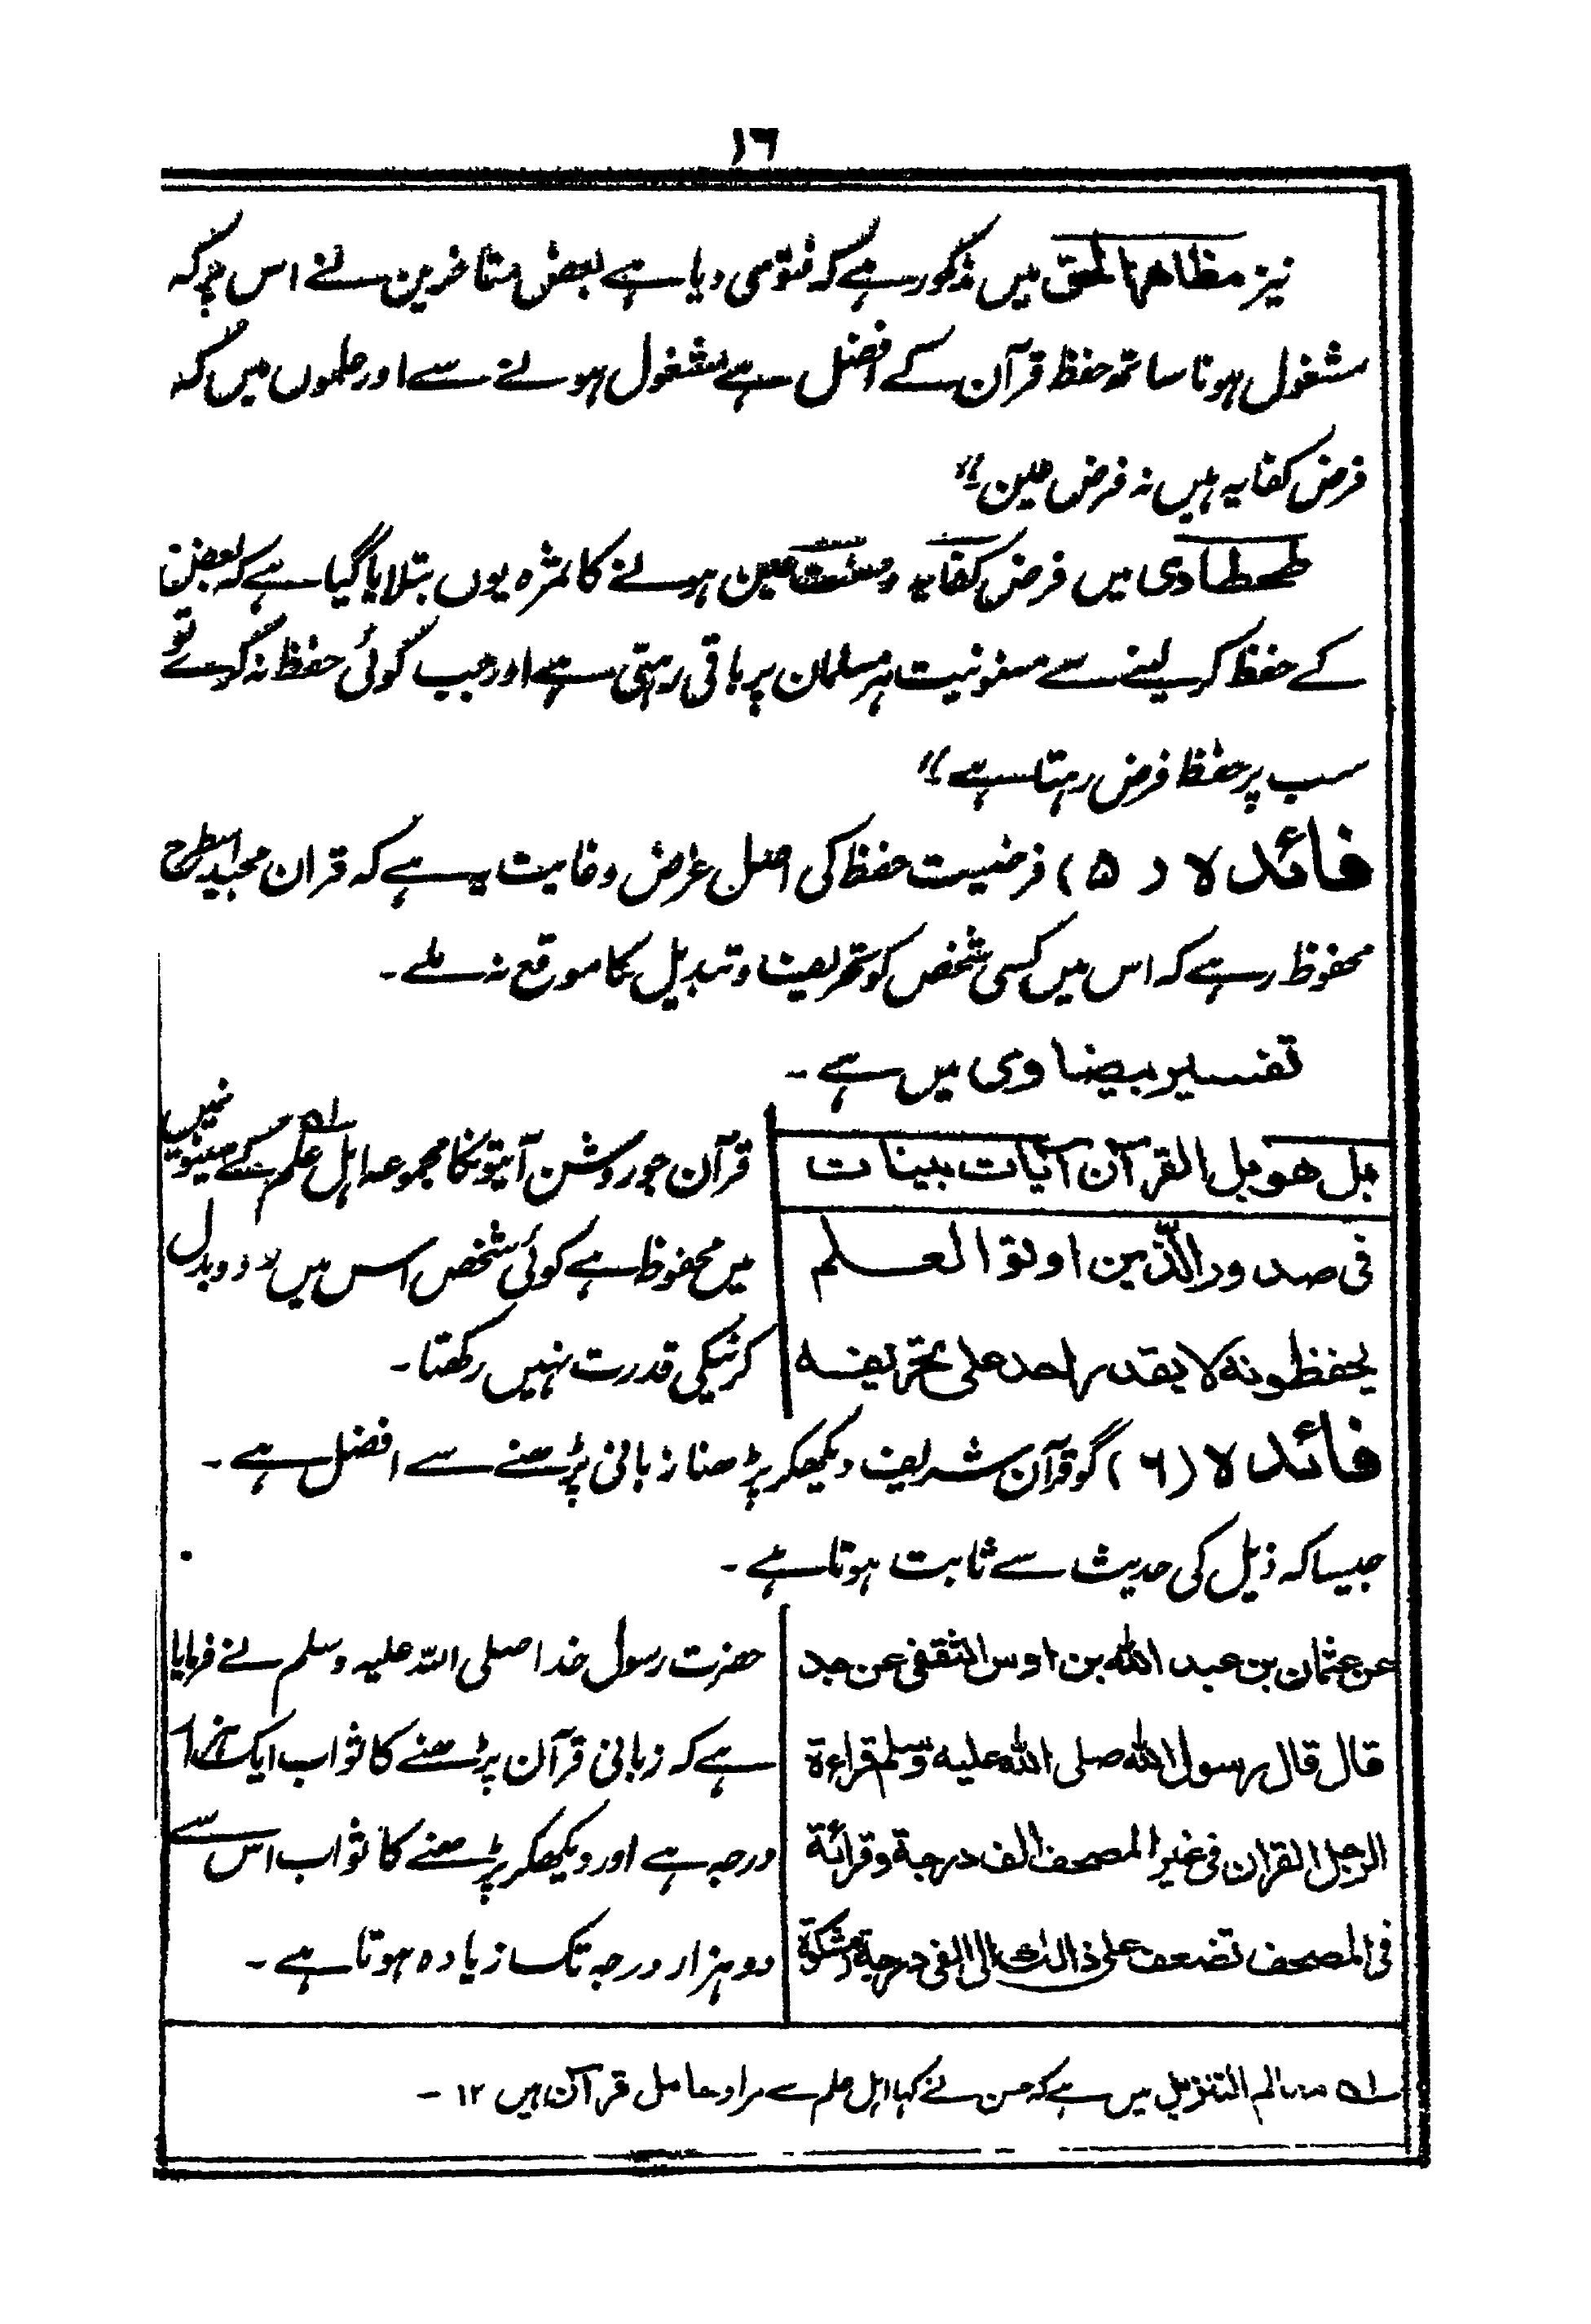 ١٦
نیز مظاهر الحق میں مذکور ہے کہ فتویٰ دیا ہے بعض متاخرین نے اس پر کہ
مشغول ہونا ساتھ حفظ قرآن کے افضل ہے مشغول ہونے سے اور علموں میں کہ
فرض کفایہ ہیں نہ فرض عین"
طحطاوی میں فرض کفایہ وسنت عین ہونے کا ثمرہ یوں بتلایا گیا ہے کہ بعض
کے حفظ کر لینے سے مسنونیت ہر مسلمان پر باقی رہتی ہے اور جب کوئی حفظ نہ کرے تو
سب پر حفظ فرض رہتا ہے"
فائدہ (۵) فرضیت حفظ کی اصل غرض وغایت یہ ہے کہ قرآن مجید اسطرح
محفوظ رہے کہ اس میں کسی شخص کو تحریف و تبدیل کا موقع نہ ملے۔
تفسیر بیضاوی میں ہے۔
بل هو بل القرآن آیات بینات
فی صدور الذین اوتوا العلم
یحفظونه لا یقدر احد علی تحریفه
قرآن جو روشن آیتونکا مجموعہ اہل علم۱ے کے سینوں
میں محفوظ ہے کوئی شخص اس میں ردوبدل
کرنیکی قدرت نہیں رکھتا۔
فائدہ (٦) گو قرآن شریف دیکھکر پڑھنا زبانی پڑھنے سے افضل ہے۔
جیسا کہ ذیل کی حدیث سے ثابت ہوتا ہے۔
عن عثمان بن عبد الله بن اوس الثقفی عن جد
قال قال رسول الله صلی الله علیه وسلم قراءة
الرجل القران فی غیر المصحف الف درجة وقرائة
فی المصحف تضعف علی ذالك الی الفی درجة مشکوة
حضرت رسول خدا صلی اللہ علیہ وسلم نے فرمایا
ہے کہ زبانی قرآن پڑھنے کا ثواب ایک ہزار
درجہ ہے اور دیکھکر پڑھنے کا ثواب اس سے
دو ہزار درجہ تک زیادہ ہوتا ہے۔
۱ے معالم التنزیل میں ہے کہ حسن نے کہا اہل علم سے مراد حامل قرآن ہیں ۱۲ –